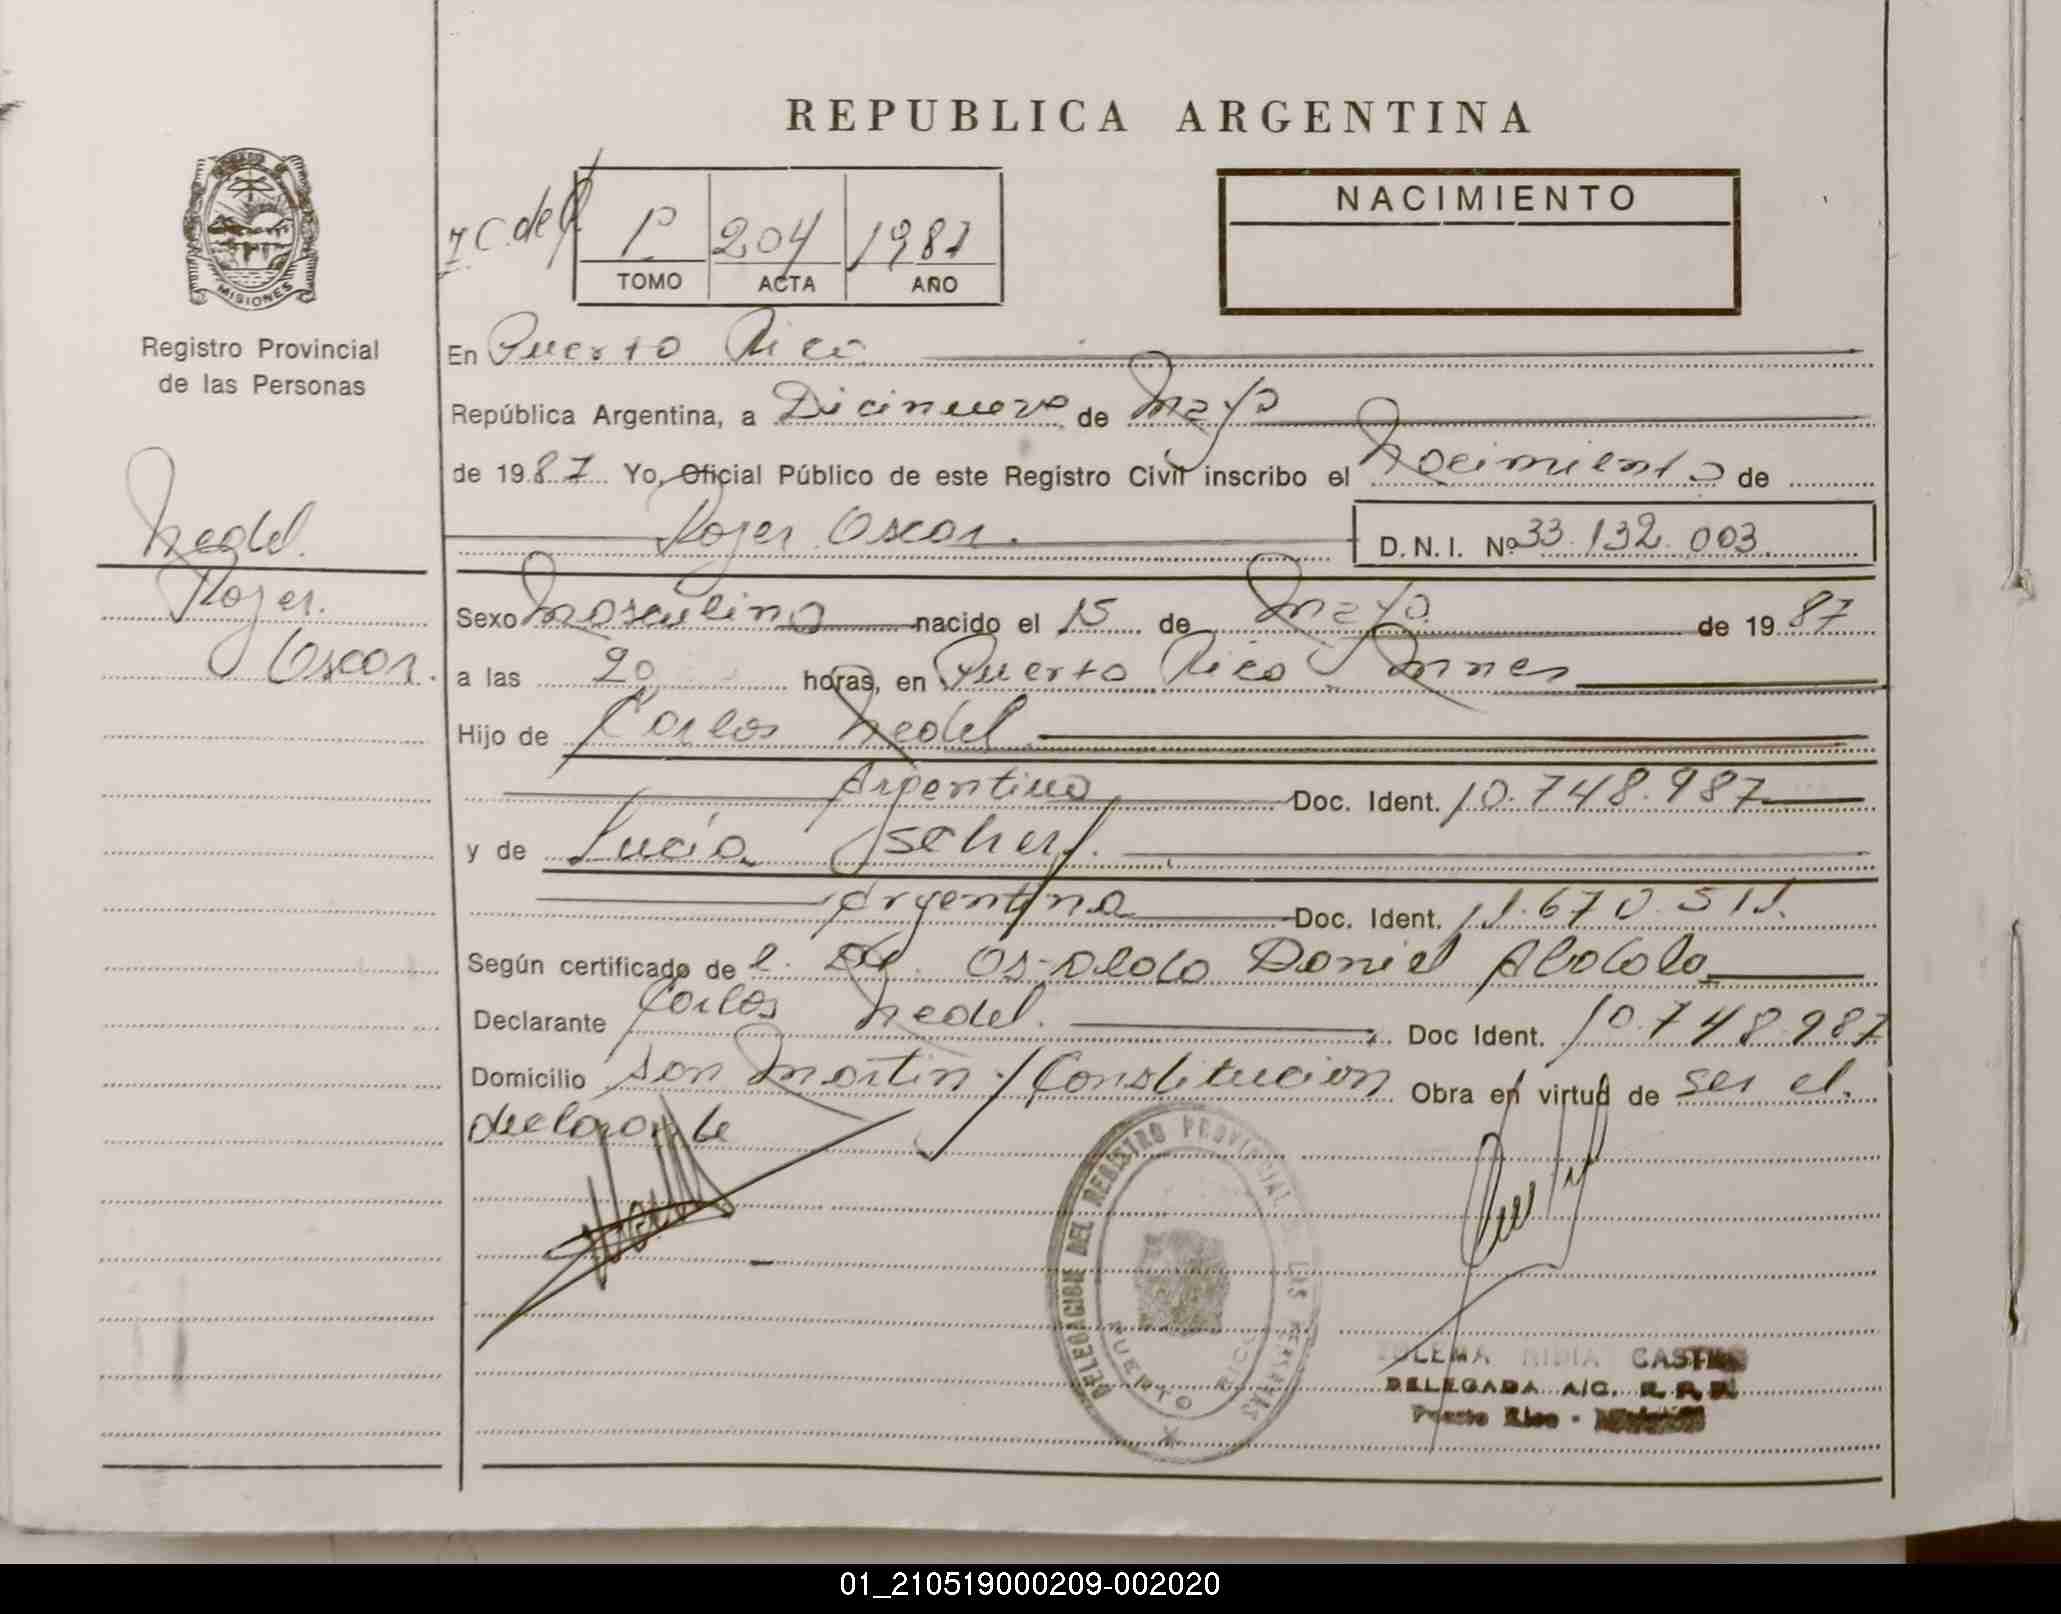 REPUBLICA ARGENTINA
NACIMIENTO
1º 204 1987
TOMO ACTA AÑO
MISIONES
Registro Provincial
de las Personas
Nedel
Rojer
Oscar.
En Puerto Rico
República Argentina, a Dicinueve de Mayo
de 1987 Yo, Oficial Público de este Registro Civil inscribo el Nacimiento de
Rojer Oscar.
D.N.I. Nº 33.132.003
Sexo Masculino nacido el 15 de Mayo de 1987
a las 20 horas, en Puerto Rico Mnes
Hijo de Carlos Nedel
Argentino Doc. Ident. 10.748.987
y de Lucia Scherf.
Argentina Doc. Ident. 11.670.511.
Según certificado de l. Dr. Daniel
Declarante Carlos Nedel. Doc Ident. 10.748.987
Domicilio San Martin / Constitucion Obra en virtud de ser el
declarante
DELEGACION DEL REGISTRO PROVINCIAL DE LAS PERSONAS
PUERTO RICO
CASTRO
DELEGADA A/C. R. P. P.
Puerto Rico - Misiones
01_210519000209-002020